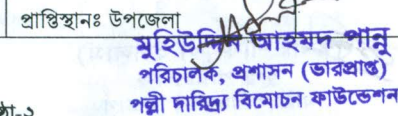 প্রাপ্তিস্থানঃ উপজেলা
মুহিউদ্দিন আহমদ পান্নু
পরিচালক, প্রশাসন (ভারপ্রাপ্ত)
পল্লী দারিদ্র্য বিমোচন ফাউন্ডেশন